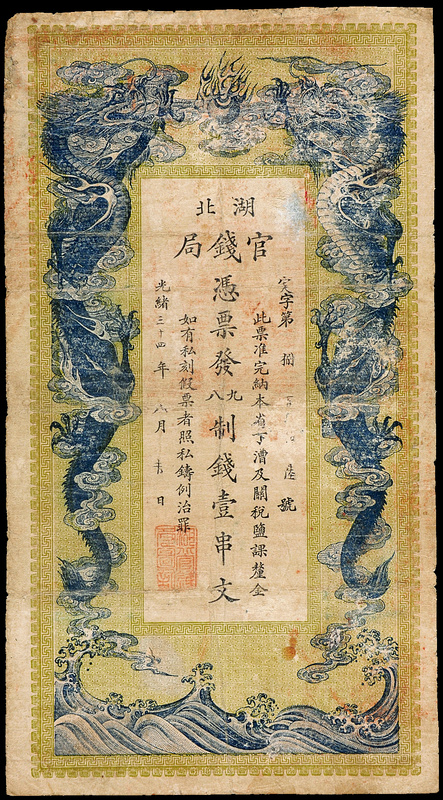 湖北
官錢局
字第 捌 號
此票准完納本省丁漕及關稅鹽課釐金
憑票發九八制錢壹串文
如有私刻假票者照私鑄例治罪
光緒三十四年 八月 日